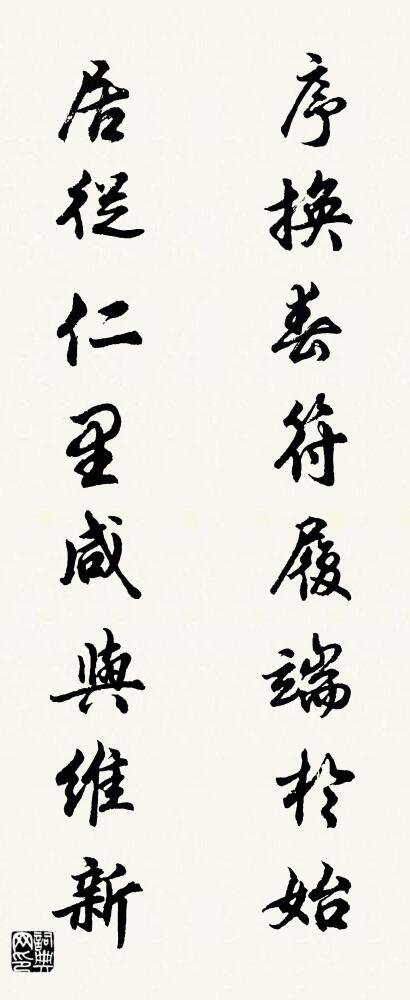 序換春符履端於始
居從仁里咸與維新
詞典网印